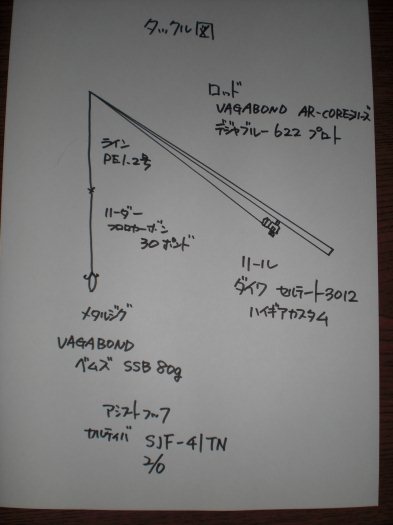 タックル図
ロッド
VAGABOND AR-COREシリーズ
デジャブルー622 プロト
ライン
PE1.2号
リーダー
フロロカーボン
30ポンド
リール
ダイワ セルテート3012
ハイギアカスタム
メタルジグ
VAGABOND
ベムズ SSB 80g
アシストフック
セルティバ SJF-41TN
2/0